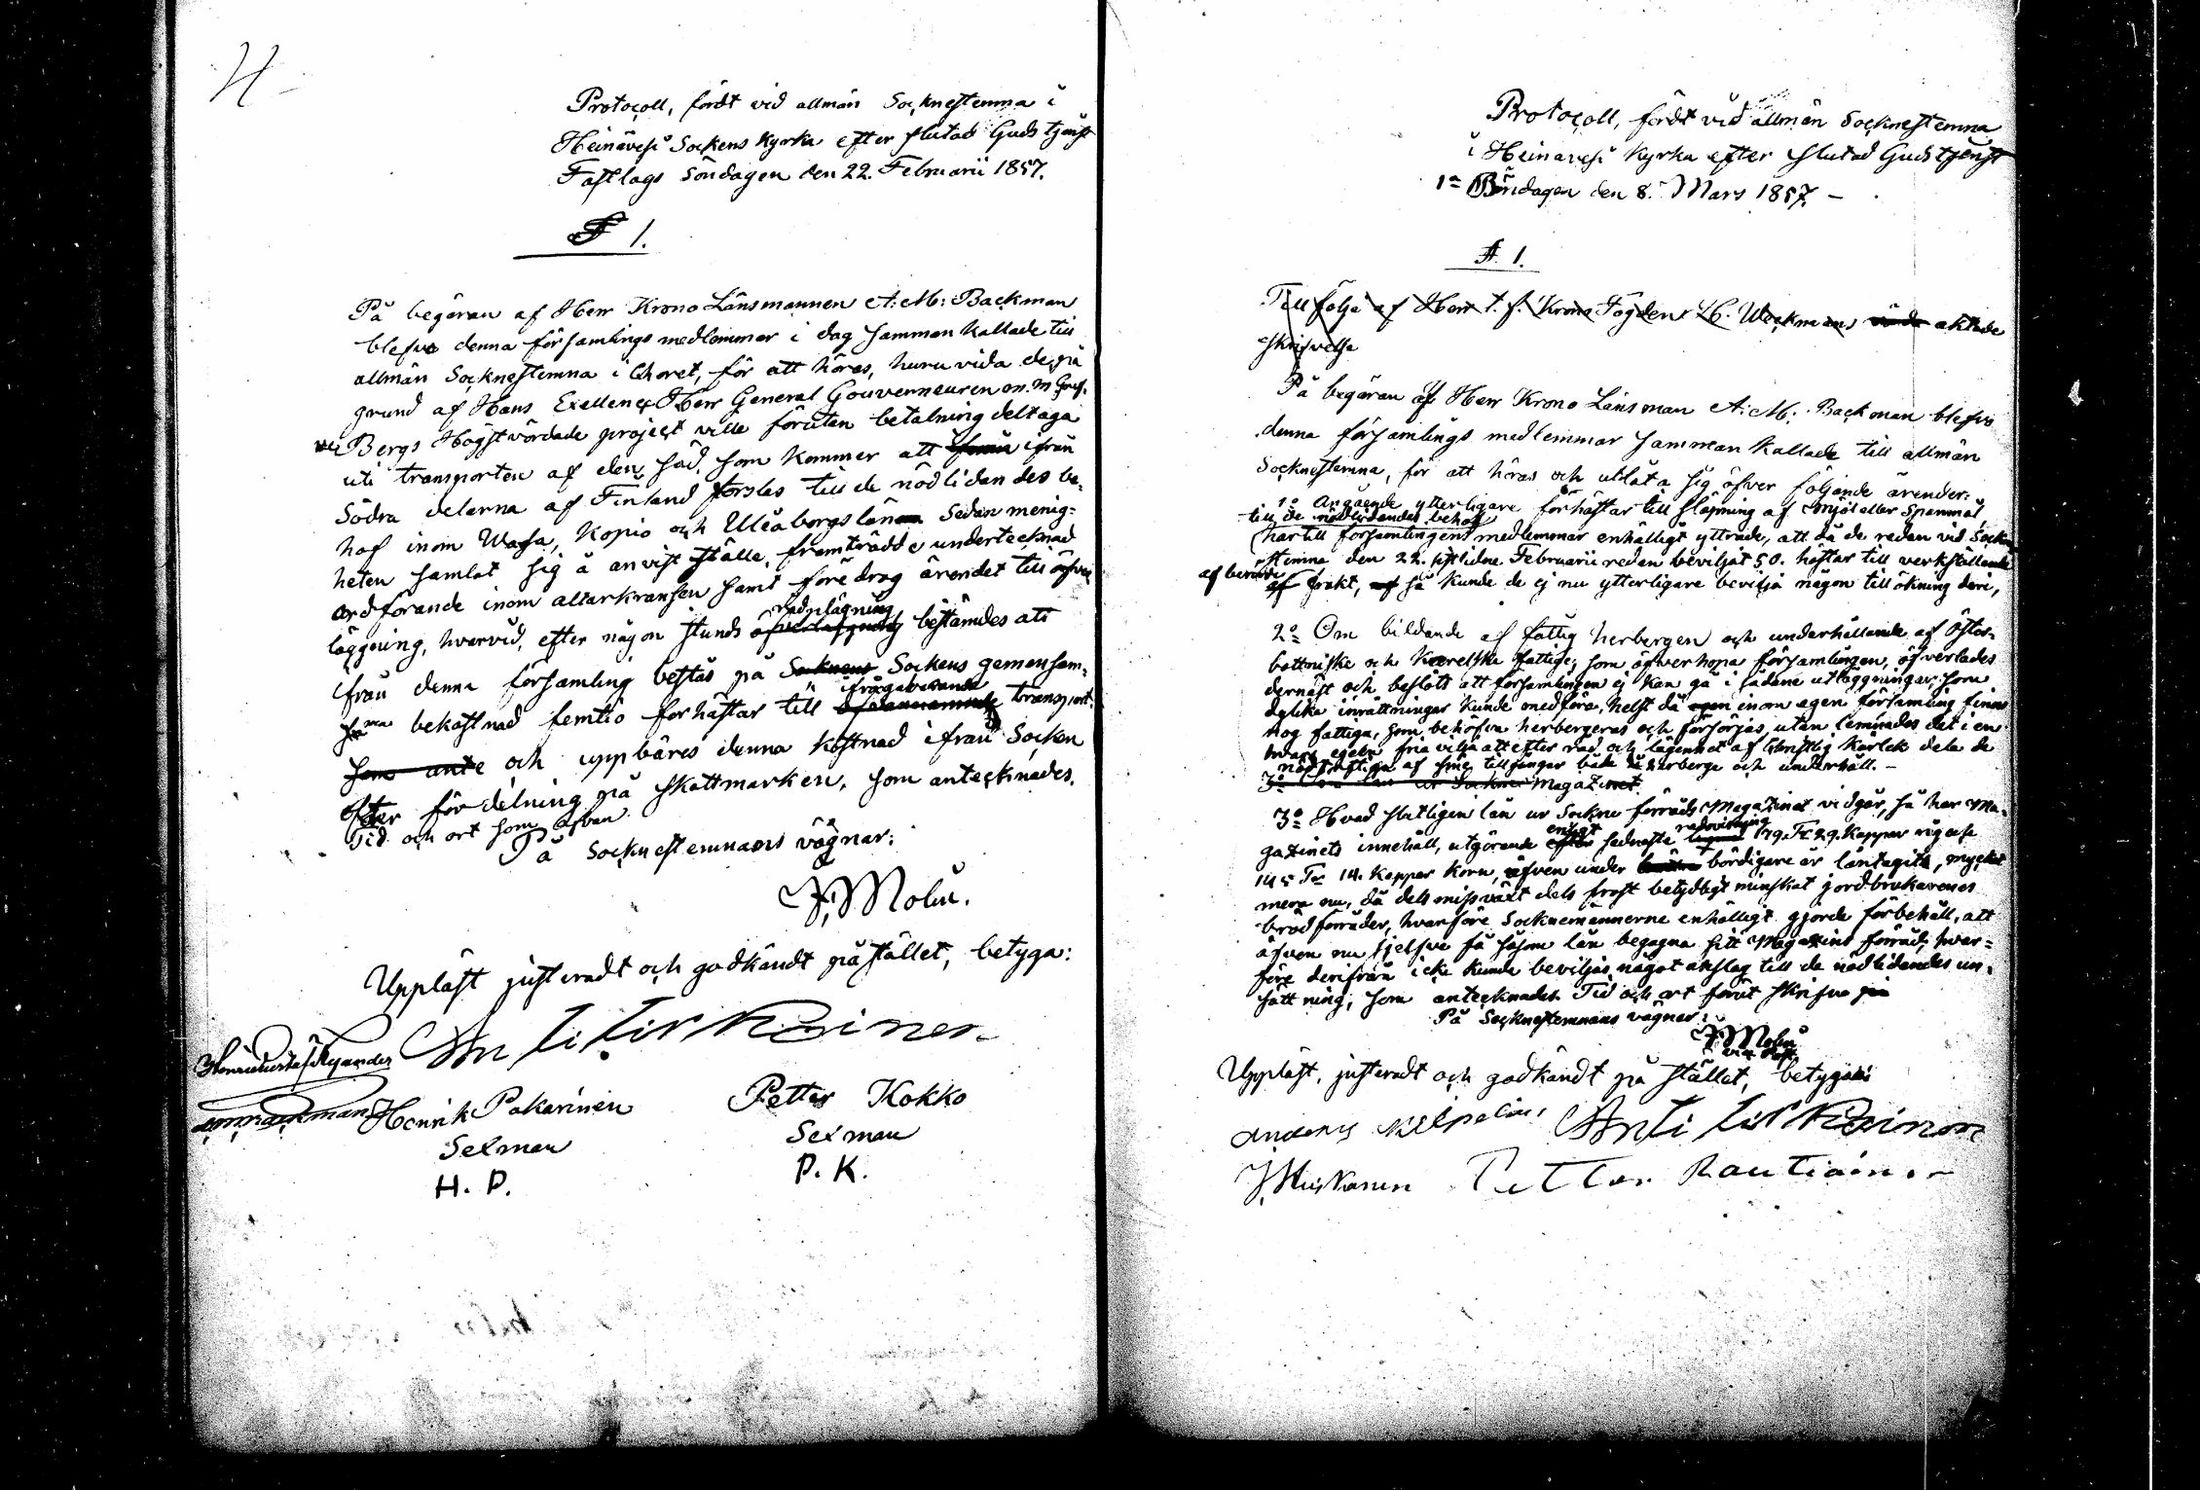 H
Protocoll, fördt vid allmän Socknestemma i
Heinävesi Sockens Kyrka efter slutad Gudstjenst
Fastlags Söndagen den 22. Februarii 1857.
§ 1.
På begäran af Herr Krono Länsmannen A: M: Backman
blefvo denna församlings medlemmar i dag samman kallade till
allmän Socknestemma i Choret, för att höras, huru vida de på
grund af Hans Exellence Herr General Gouverneuren m. m Gref.
ve Bergs Högstvördade project ville förutan betalning deltaga
uti transporten af den säd, som kommer att ifrån
Södra delarna af Finland forslas till de nödlidandes be-
hof inom Wasa, Kopio och Uleåborgs län. Sedan menig-
heten samlat sig å anvist ställe, framträdde undertecknad
ordförande inom altarkransen samt föredrog ärendet till öfver
läggning, hvarvid, efter någon stunds rådplägning bestämdes att
ifrån denna församling bestås på Sockens gemensam-
ma bekostnad femtio forhästar till ifrågavarande transport
och uppbäres denna kostnad ifrån Socken
efter fördelning på skattmarken, som antecknades.
Tid och ort som ofvan
På Socknestemmans vägnar:
F. Molin.
Uppläst justeradt och godkändt på stället, betyga:
Anti Tirkkoinen
Henrik Pakarinen
Petter Kokko
Sexman
Sexman
H. P.
P. K.
Protocoll, fördt vid allmän Socknestemma
i Heinävesi Kyrka efter slutad Gudstjenst
1a Böndagen den 8. Mars 1857. –
§ 1.
Till följe af Herr t. f. Krono Fogden Weckmans aktade
skrifvelse
På begäran af Herr Krono Länsman A: M: Backman blefvo
denna församlings medlemmar samman kallade till allmän
Socknestemma, för att höras och utlåta sig öfver följande ärender:
1o Angående ytterligare forhästar till släpning af Mjöl eller Spanmål
till de nödlidandes behof
härtill församlingens medlemmar enhälligt yttrade, att då de redan vid Socken
stemma den 22. sistlidne Februarii redan beviljat 50. hästar till verkställande
af berörde frakt, så kunde de ej nu ytterligare bevilja någon tillökning deri,
2o Om bildande af fattig herbergen och underhållande af Öster-
bottniske och Karelske fattige, som öfverhopa församlingen, öfverlades
dernäst och beslöts att församlingen ej kan gå i sådane utläggningar, som
dylika inrättningar kunde medföra, helst då inom egen församling finnes
nog fattiga, som behöfva herbergeras och försörjas, utan lemnades det i en
hvars egen fria vilja att efter råd och lägenhet af Christlig Kärlek dela de
nödstälda af sine tillgångar både herberge och underhåll. –
3o Magazinet
3o Hvad slutligen lån ur Sockne förråds Magazinet vidgår, så har Ma-
gazinets innehåll, utgörande enligt sednaste redovisning 179. Tr 29. Kappar råg och
145 Tr 14. Kappar Korn, äfven under bördigare år låntagits, mycket
mera nu, då dels missväxt dels frost betydligt minskat jordbrukarenes
brödförråder, hvarföre Socknemännerne enhälligt gjorde förbehåll, att
äfven nu sjelfve få såsom lån begagna sitt Magazins förråd, hvar-
före derifrån icke kunde beviljas något anslag till de nödlidandes un-
sättning, som antecknades. Tid och ort förut skrifne
På Socknestemmans vägnar:
F. Molin
vice Past.
Uppläst, justeradt och godkändt på stället, betyga:
Anti Tirkkoinen
Petter Rautiainen